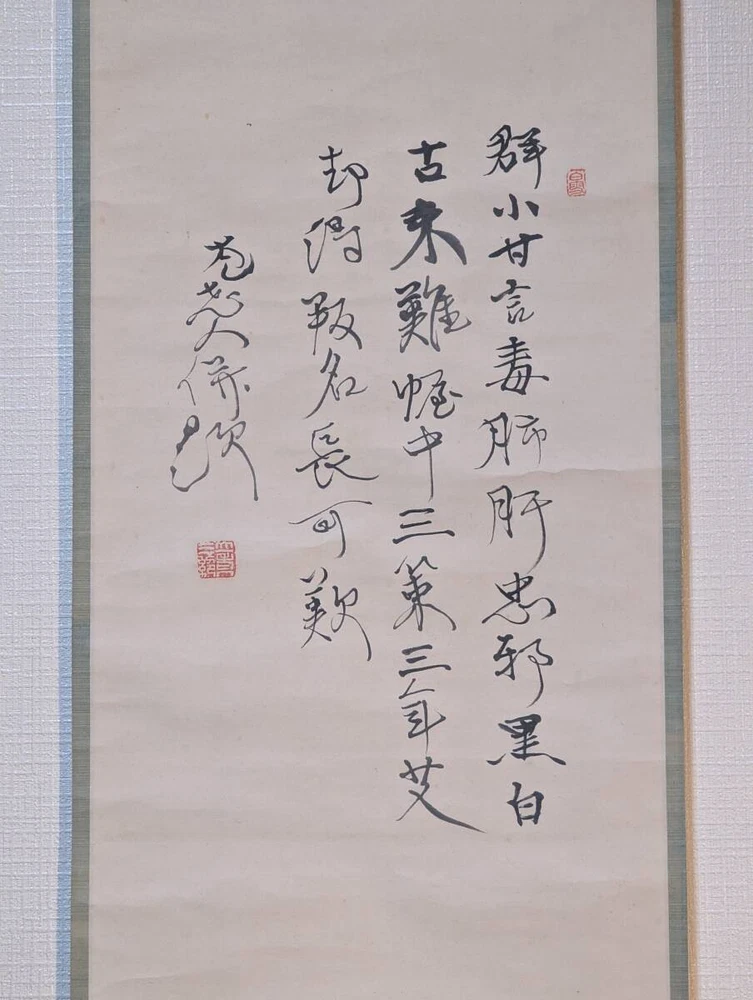 群小甘言毒肺肝忠邪黒白
古来難幄中三策三年艾
却得叛名長可歎
老人併題